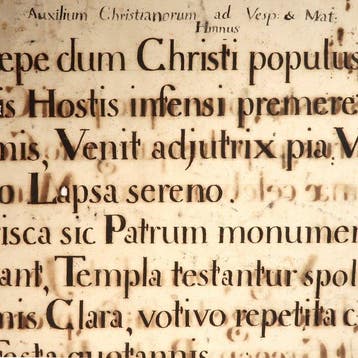 Auxilium Christianorum ad Vesp: & Mat:
Hmnus
epe dum Christi populus
is Hostis infensi premere
mis, Venit adjutrix pia V
o Lapsa sereno.
isca sic Patrum monumen
ant, Templa testantur spol
mis Clara, votivo repetita c
Festa quotannis